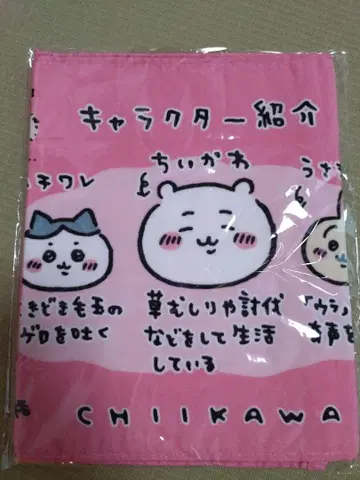 キャラクター紹介
チワレ
ちいかわ
うさ
きどき毛玉の
ゲロを吐く
草むしりや討伐
などをして生活
している
「ウラ
奇声を
CHIIKAWA